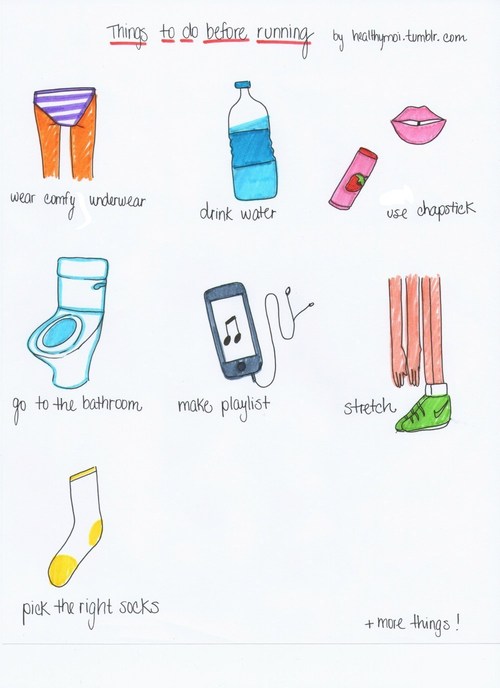 Things to do before running by healthymoi.tumblr.com
wear comfy underwear
drink water
use chapstick
go to the bathroom
make playlist
stretch
pick the right socks
+ more things!